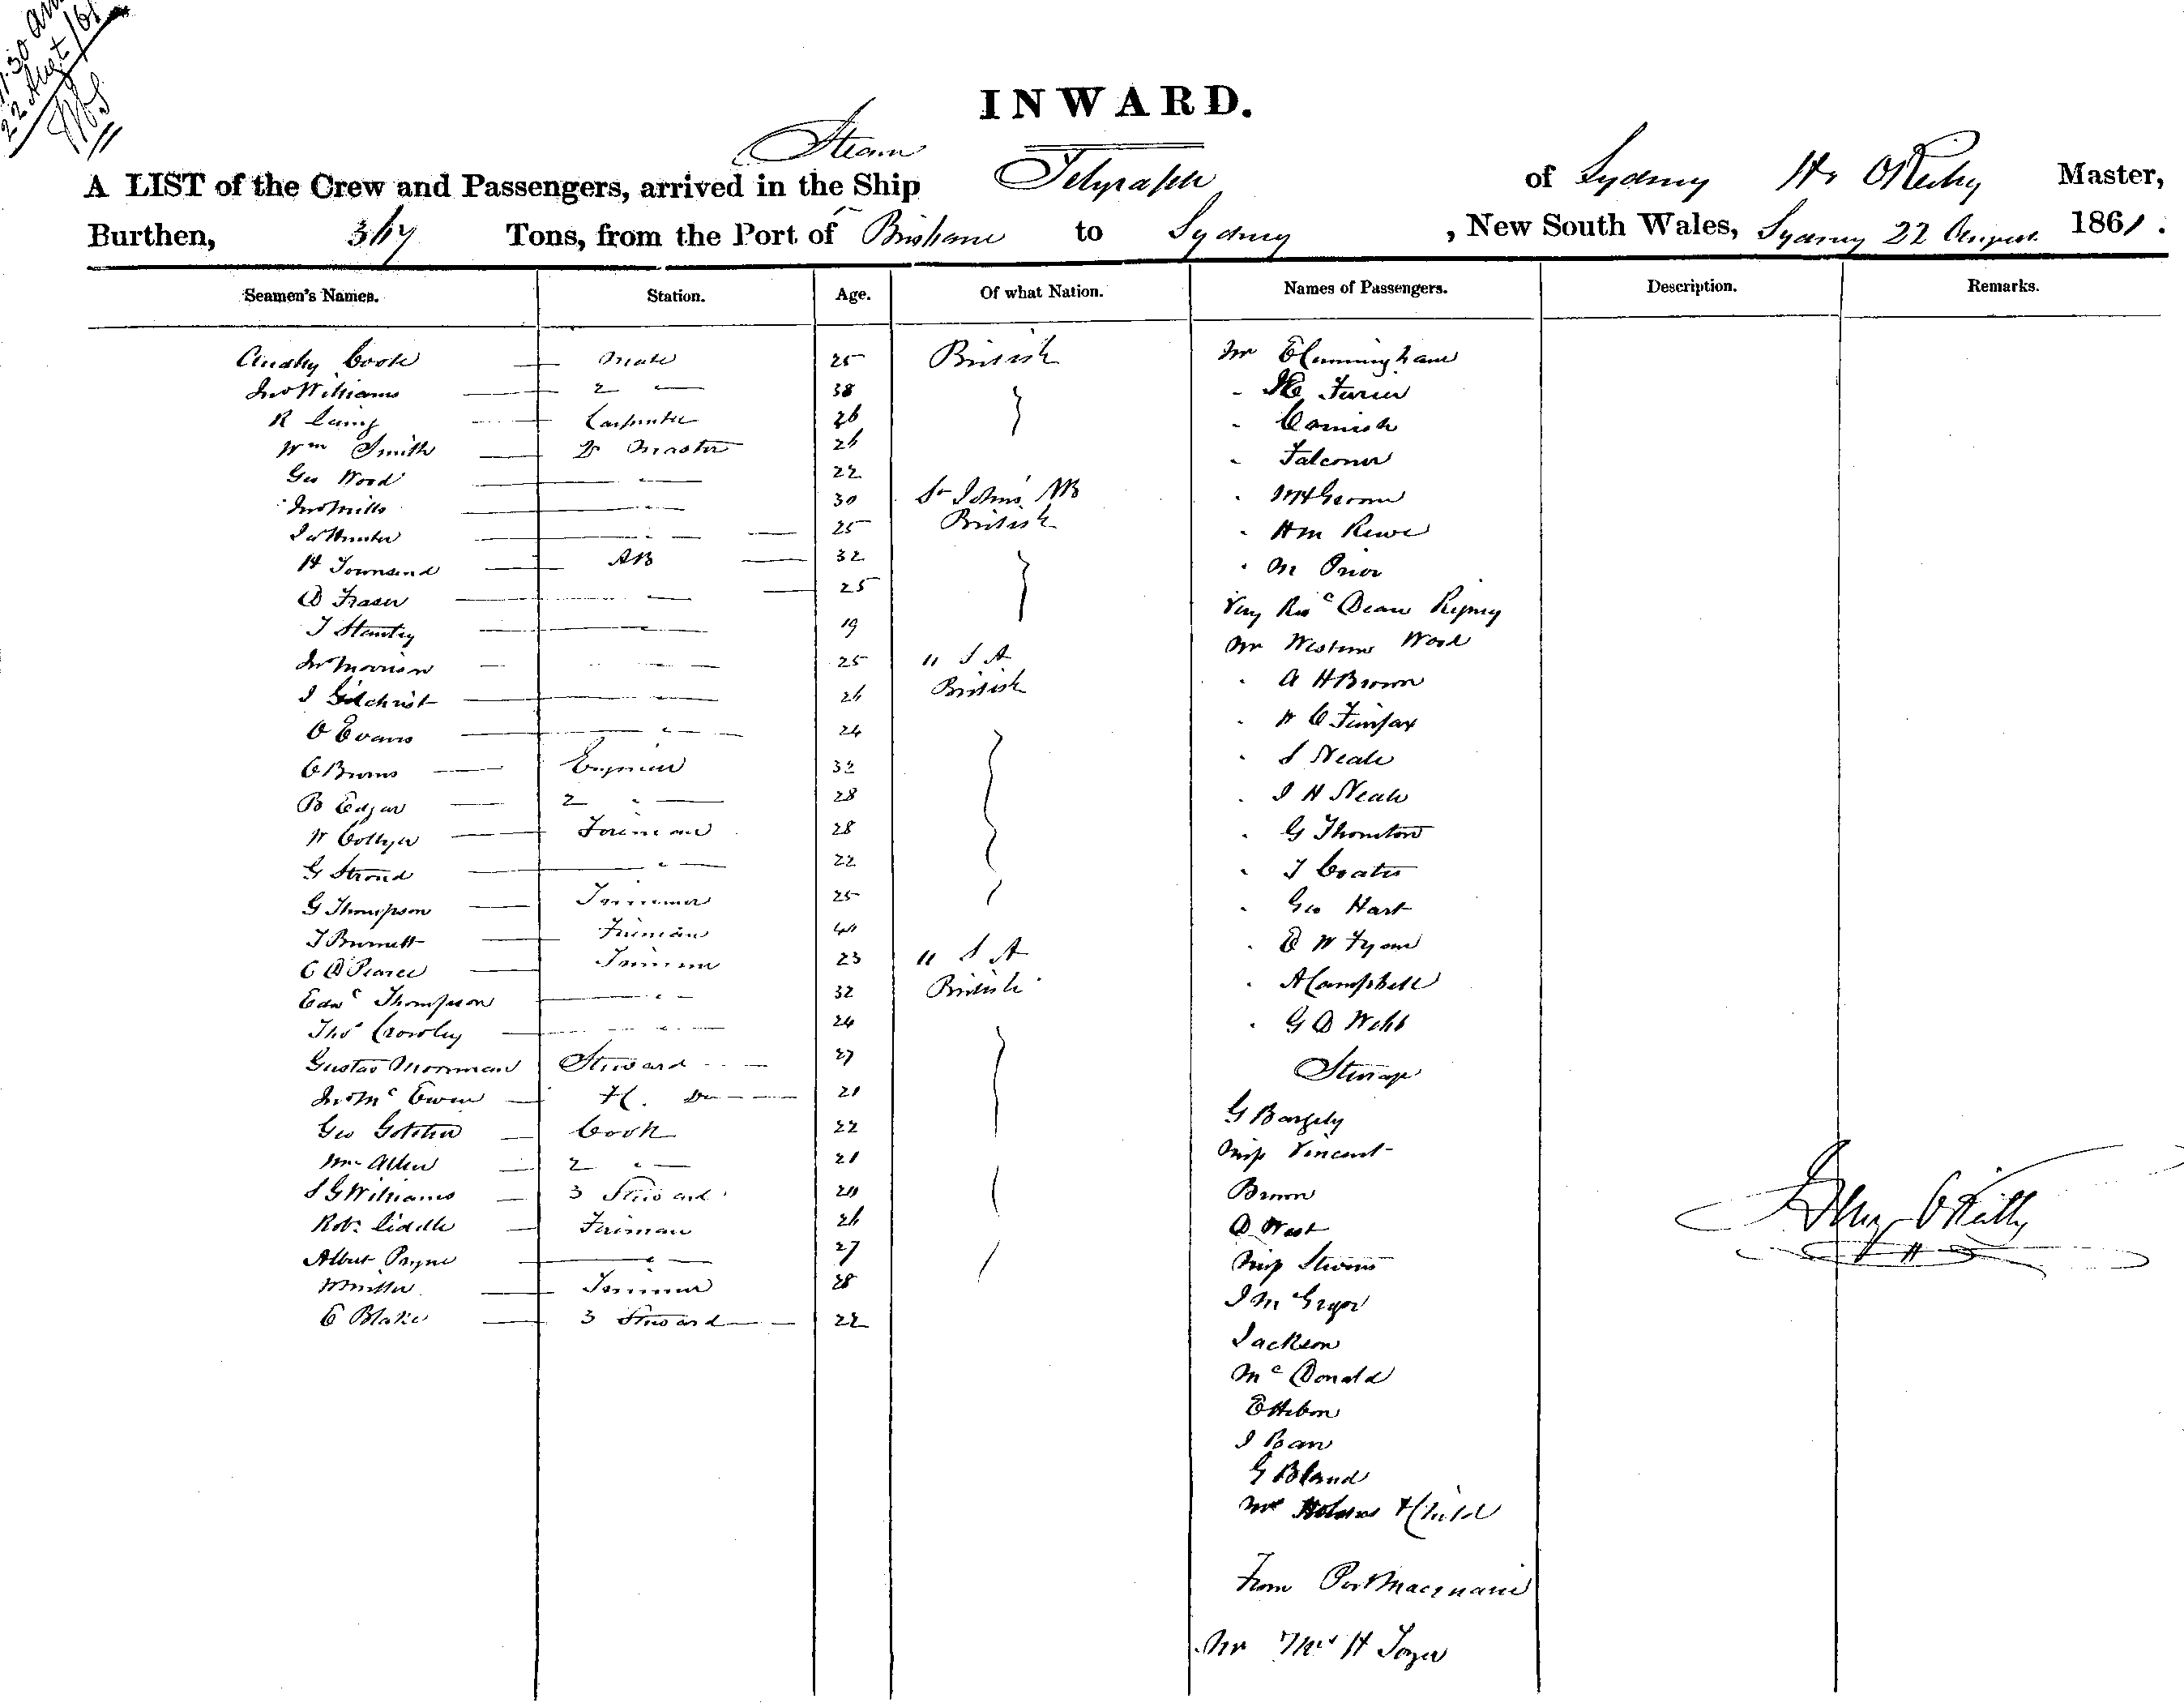 1.30 am
22 Augt/61
INWARD.
Steam
A LIST of the Crew and Passengers, arrived in the Ship Telegraph of Sydney Hy O'Reilly Master,
Burthen, 367 Tons, from the Port of Brisbane to Sydney, New South Wales, Sydney 22 August 1861.
Seamen's Names. Station. Age. Of what Nation. Names of Passengers. Description. Remarks.
Cook Mate 25 British Mr Cunningham
Jno Williams 2 " 38
R Laing Carpenter 26 " Cornish
Wm Smith Qr Master 26 " Falconer
Geo Wood " 22
Jno Mills 30 St Johns NB
Jas Hunter " 25 British " Hm Rewe
H Townsend AB 32 " M Prior
D Fraser " 25 Very Revd Dean Rigney
T Stanley " 19 Mr Western Wood
Jno Morrison " 25 U S A " A H Brown
J Gilchrist " 26 British " W C Fairfax
O Evans " 24 " S Neale
C Burns Engineer 32 " J H Neale
B Edgar 2 " 28 " G Thornton
W Collyer Foreman 28 " J Coates
G Stroud " 22 " Geo Hart
G Thompson Trimmer 25
T Burnett Fireman 40 " A Campbell
C D Pearce Trimmer 23 U S A " G D Webb
Edwd Thompson " 32 British Steerage
Thos Crowley " 24 G Bargely
Gustav Morrman Steward 27 Miss Vincent
Jno Mc Ewen Do 21 Brown
Geo Cook 22 D West
Wm Allen 2 " 21 Miss Stevens
S G Williams 3 Steward 20 J McGregor
Robt Liddle Fireman 26 Jackson
Albert Payne " 27 McDonald
W Miller Trimmer 28 E Hebon
E Blake 3 Steward 22 J Ban
G Bland
Mrs Holmes & Child
From Port Macquarie
Mr Thos H Tozer
Henry O'Reilly